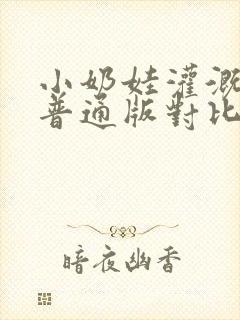 小奶娃灌溉
普通版對比
暗夜幽香